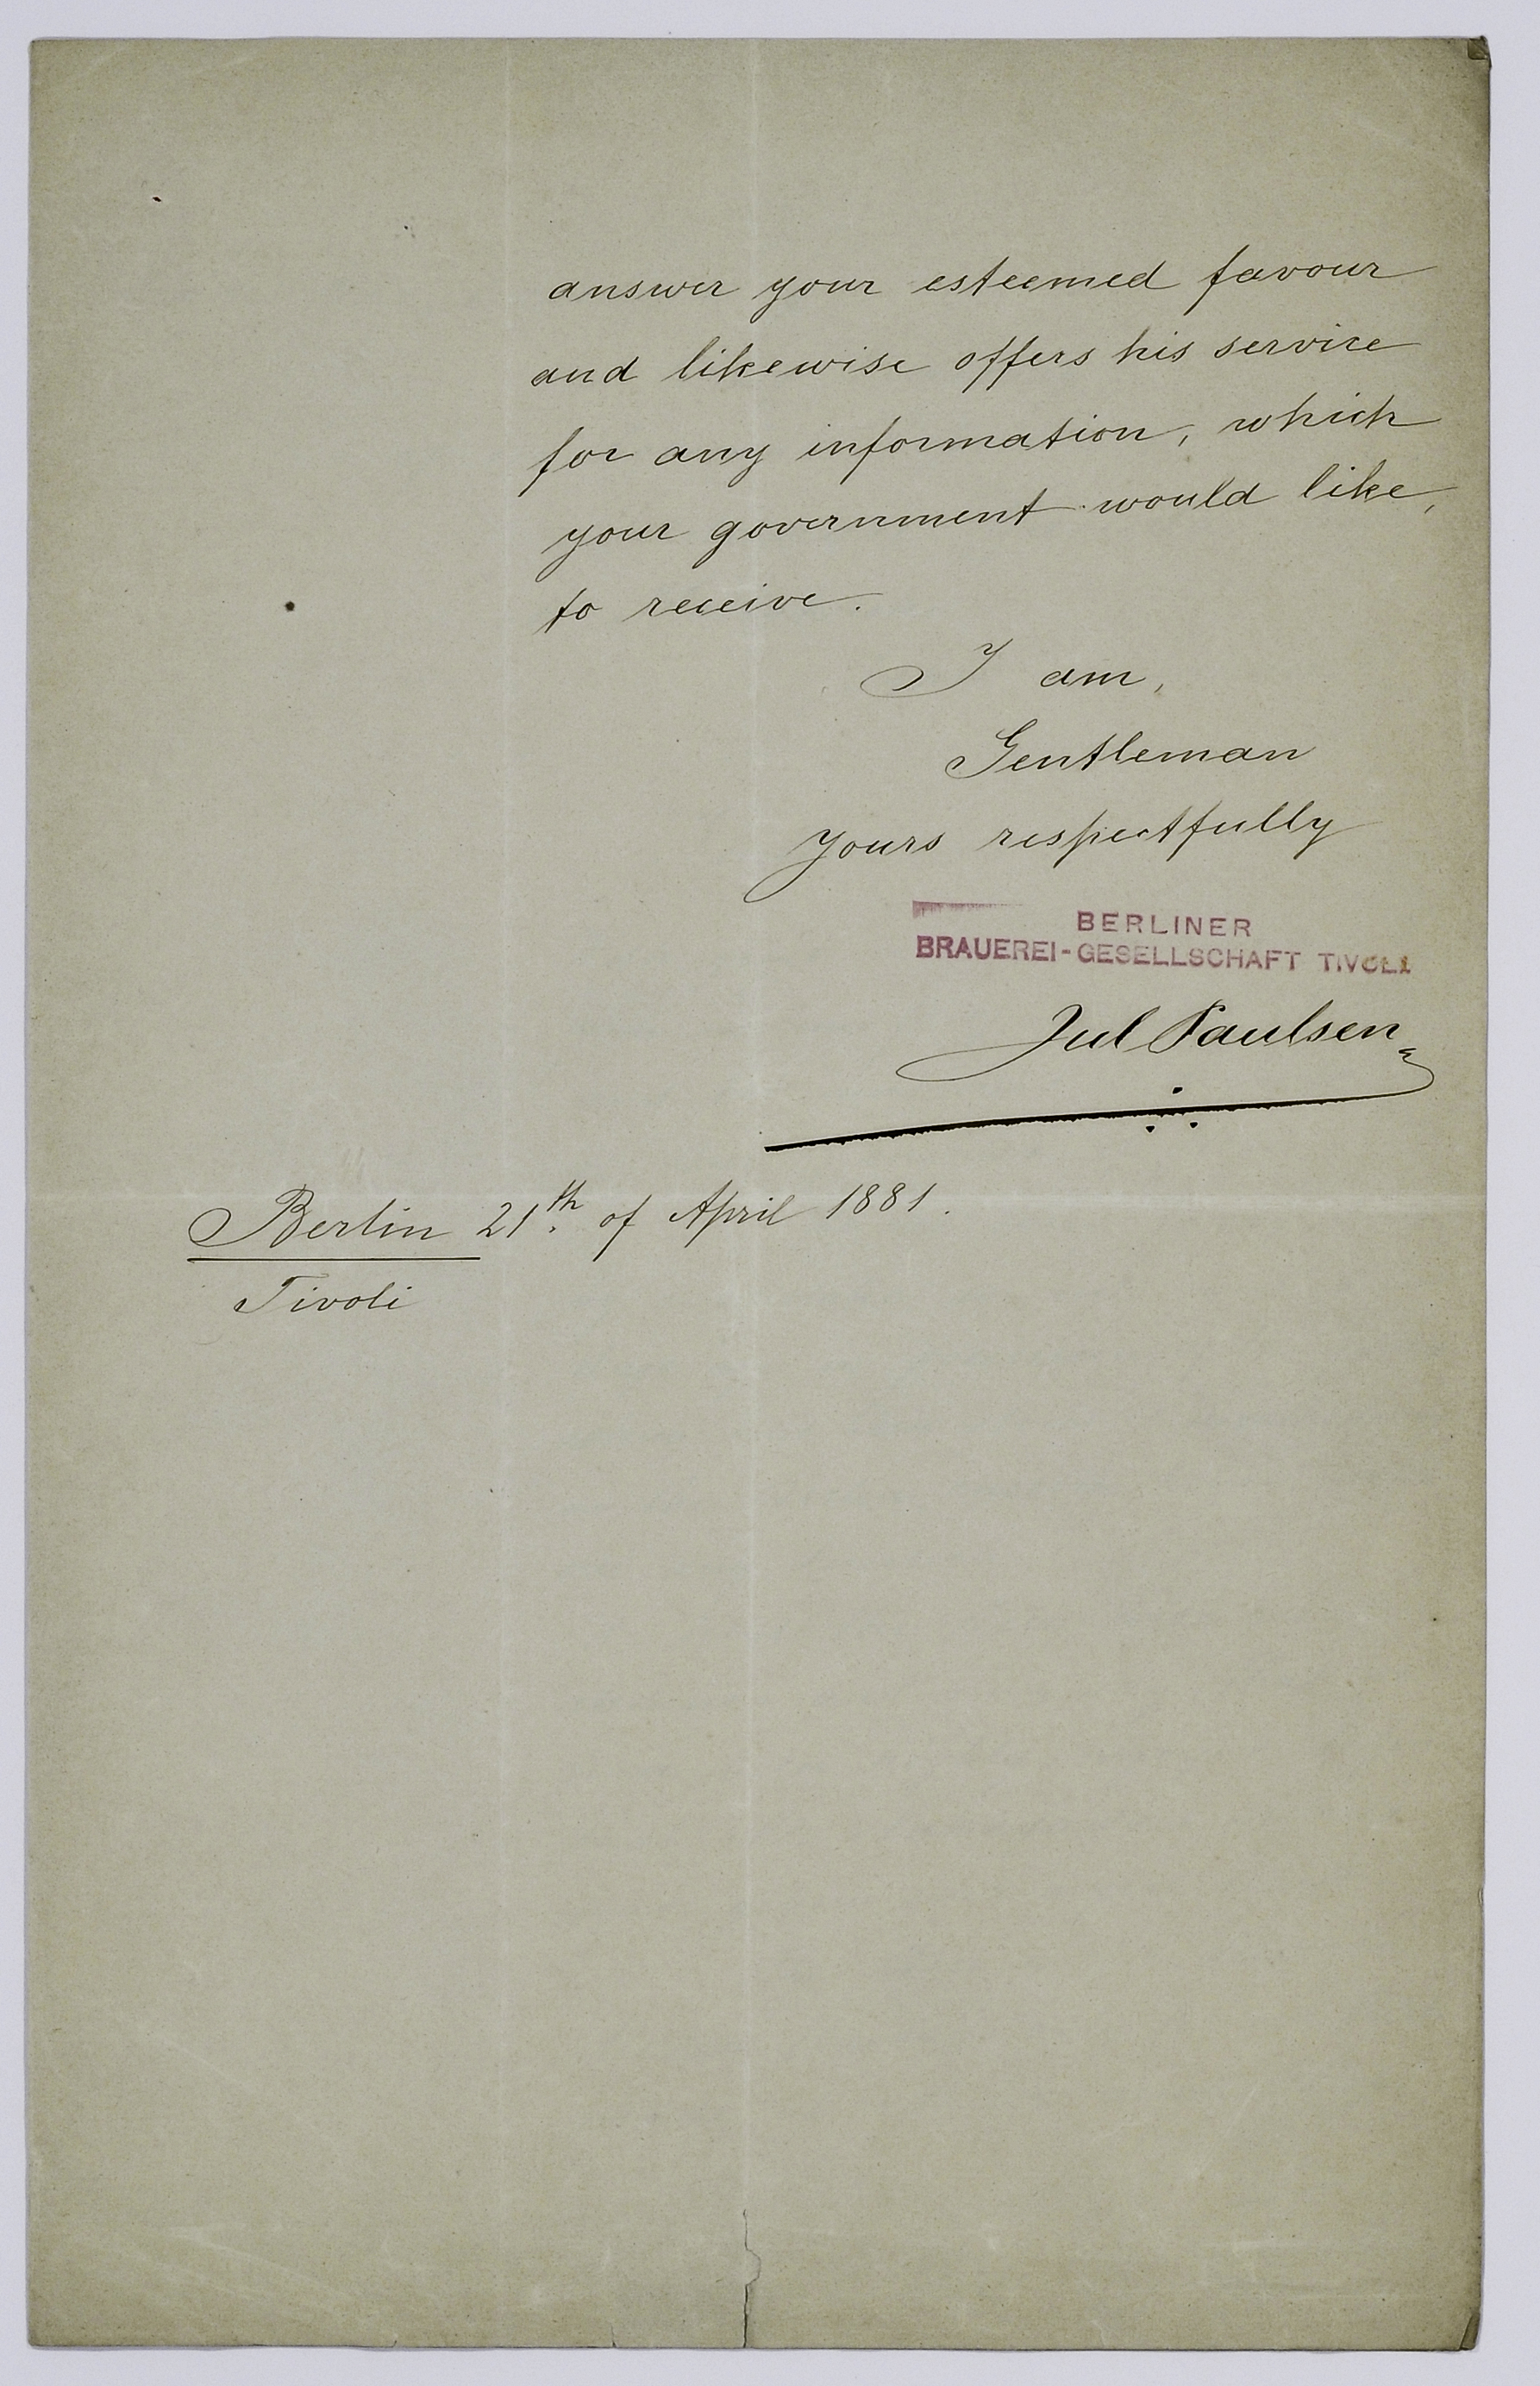 answer your esteemed favour
and likewise offers his service
for any information, which
your government would like,
to receive.
I am,
Gentleman
yours respectfully
BERLINER
BRAUEREI-GESELLSCHAFT TIVOLI
Jul Paulsen
Berlin 21th. of April 1881.
Tivoli